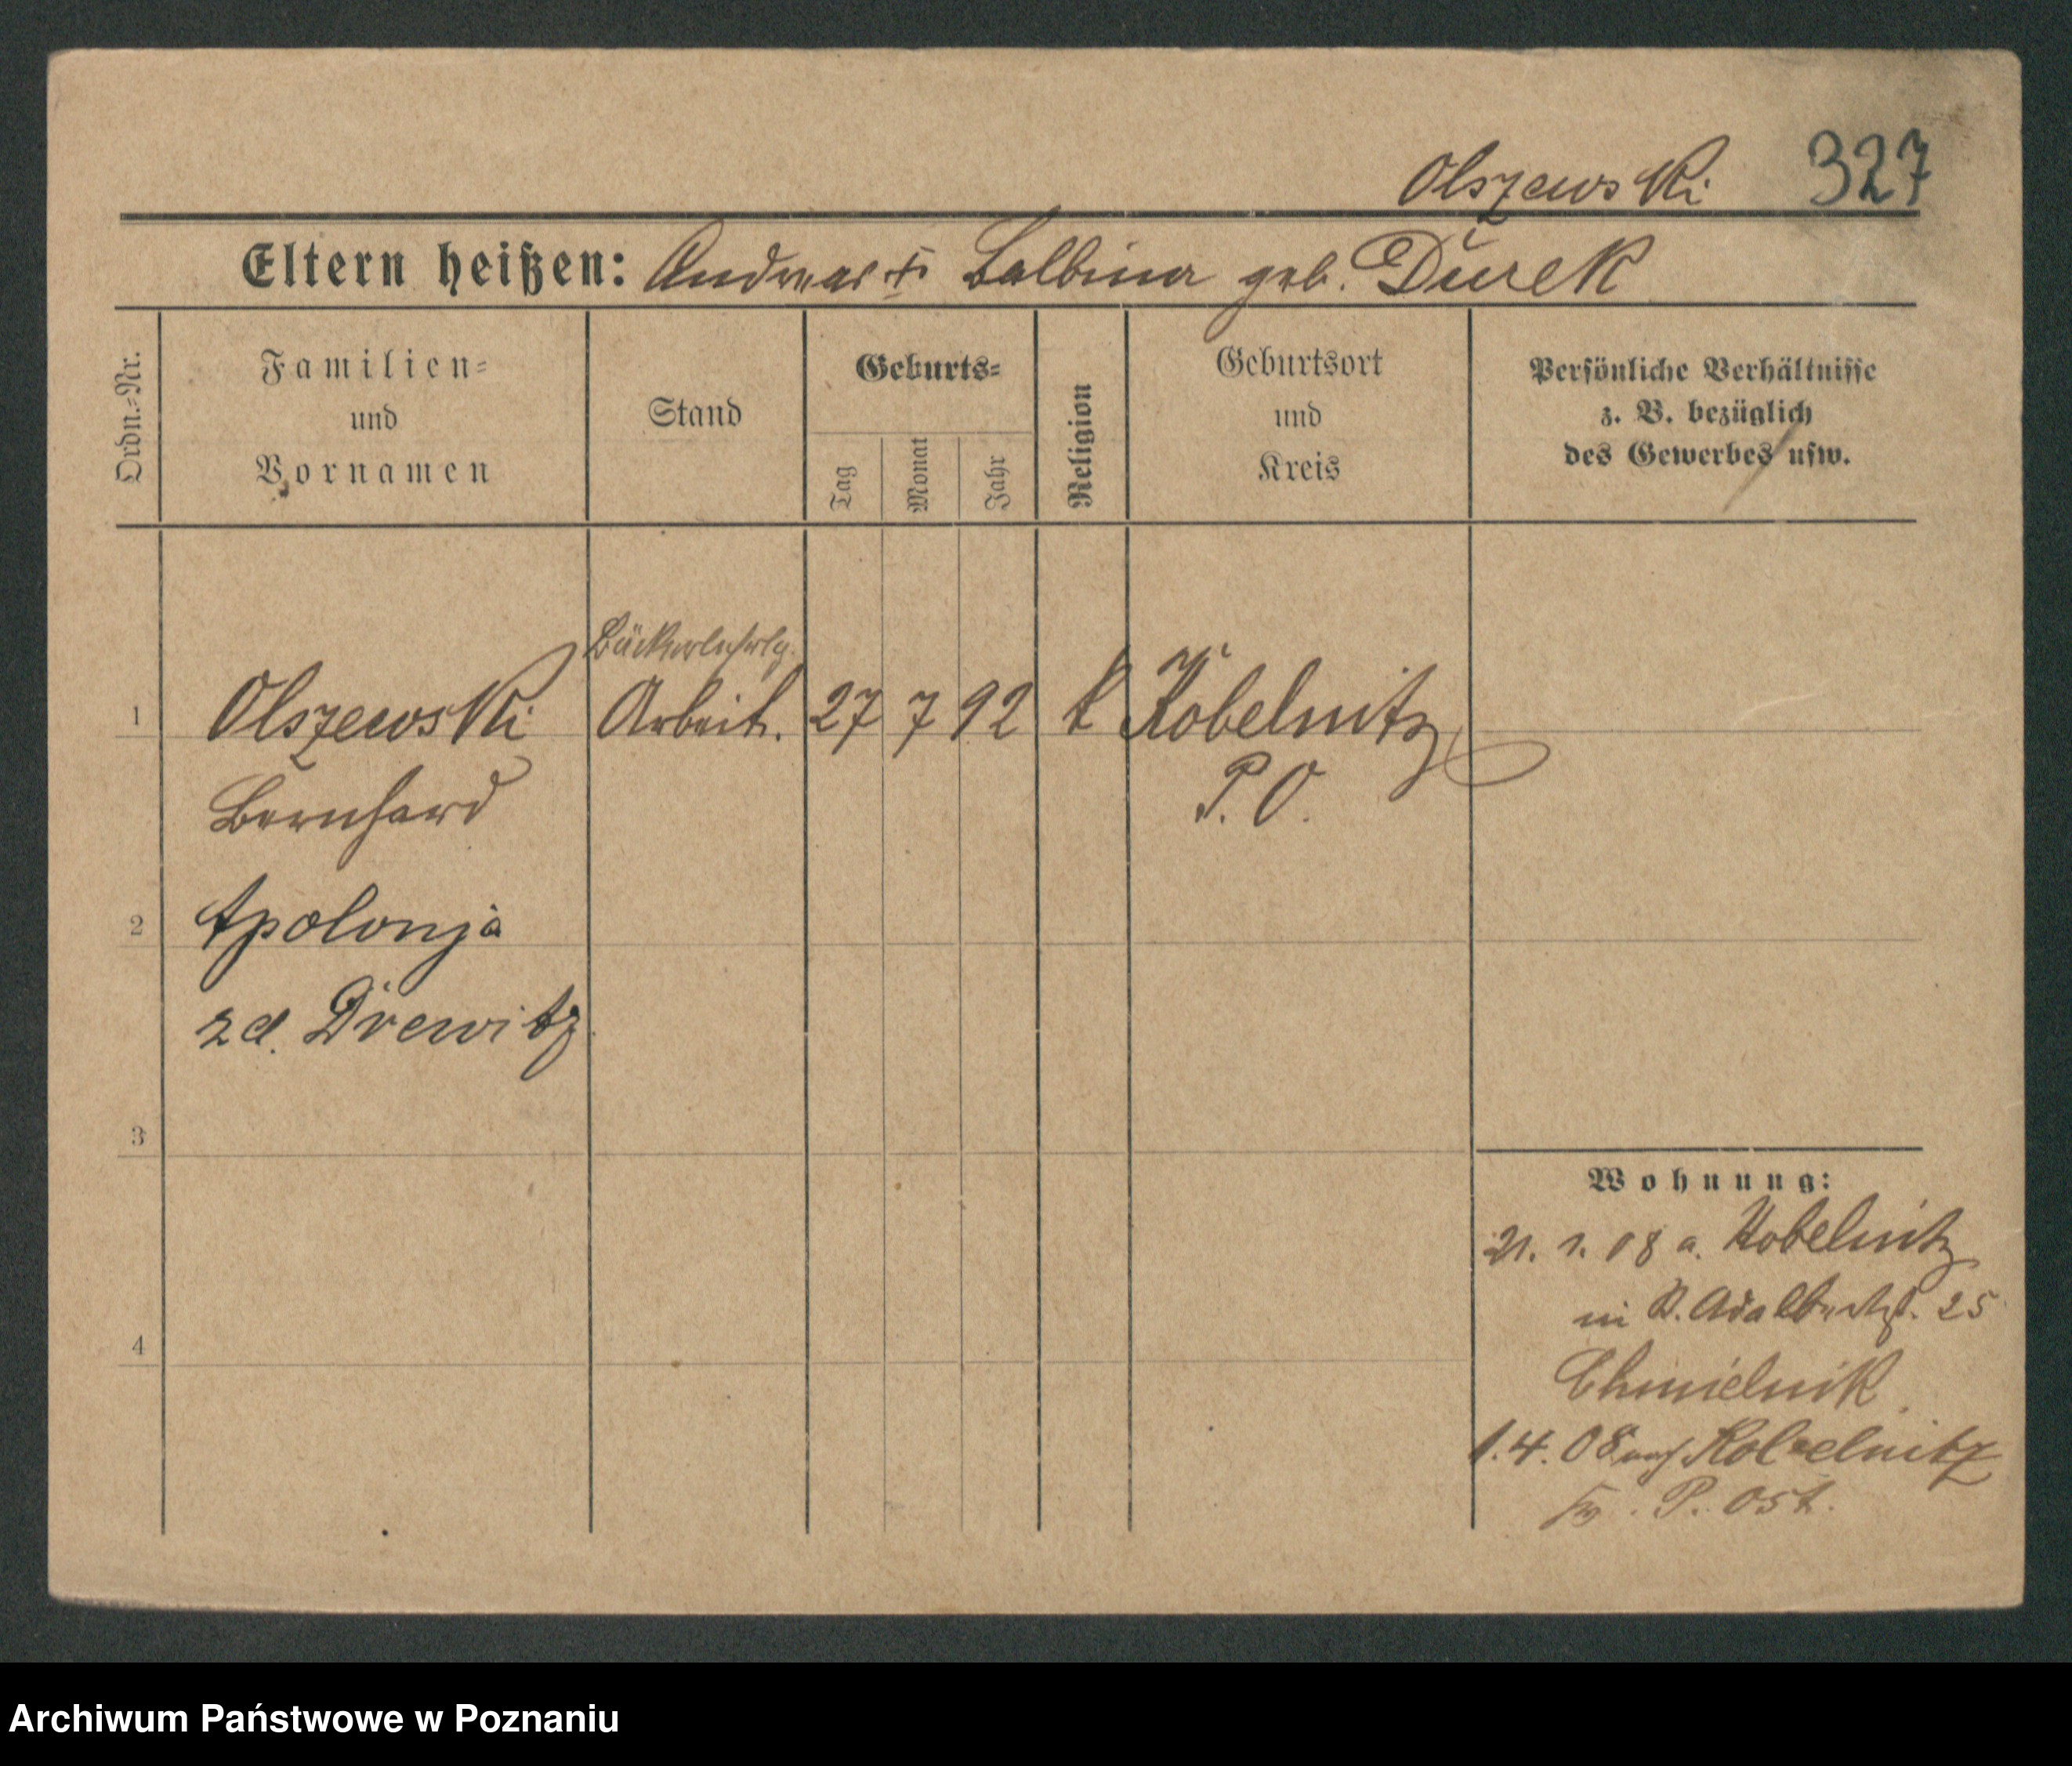 Olszewski 327
Eltern heißen: Andreas & Balbina geb. Durek
Ordn.=Nr.
Familien=
und
Vornamen
Stand
Geburts=
Tag
Monat
Jahr
Religion
Geburtsort
und
Kreis
Persönliche Verhältnisse
z. B. bezüglich
des Gewerbes usw.
Bäckerlehrlg.
1 Olszewski Arbeit. 27 7 92 k Kobelnitz
Bernhard P. O.
2 Apolonja
zd. Drewitz
3
4
Wohnung:
21. 1. 08 a. Kobelnitz
in St. Adalbertst. 25
Chmielnik
1. 4. 08 nach Kobelnitz
P. Ost.
Archiwum Państwowe w Poznaniu